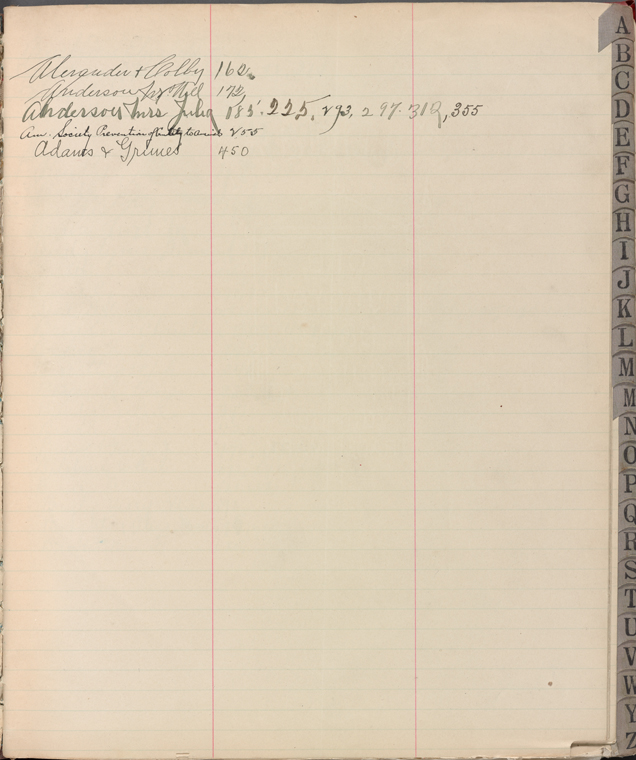 Alexander & Colby 162.
Anderson 172,
Anderson Mrs Julia 185. 225, 293, 297. 319, 355
Am. Society Prevention of Cruelty to Animals 255
Adams & Grimes 450
A
B
C
D
E
F
G
H
I
J
K
L
M
M
N
O
P
Q
R
S
T
U
V
W
Y
Z